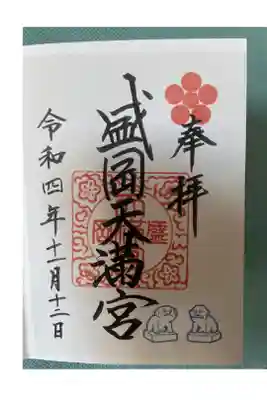 奉拝
盛岡天満宮
令和四年十一月十二日